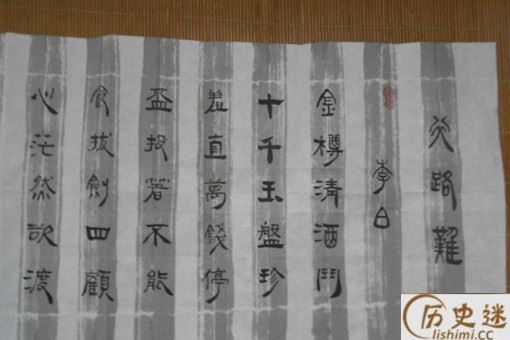 行路難
李白
金樽清酒鬥
十千玉盤珍
羞直萬錢停
盃投箸不能
食拔劍四顧
心茫然欲渡
历史迷
lishimi.cc